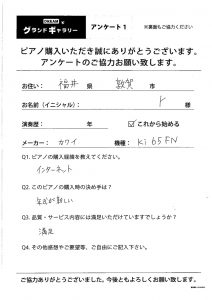 アンケート1
※裏面もご協力ください
グランドギャラリー
ピアノ購入いただき誠にありがとうございます。
アンケートのご協力お願い致します。
お住い: 福井 県 敦賀 市
お名前(イニシャル): Y 様
演奏歴: 年 ☑ これから始める
メーカー: カワイ 機種: Ki65FN
Q1. ピアノの購入経緯を教えてください。
インターネット
Q2. このピアノの購入時の決め手は?
年式が新しい
Q3. 品質・サービス内容には満足いただけていますでしょうか?
満足
Q4. その他感想やご要望等、ご自由にご記入下さい。
ご協力ありがとうございました。今後ともよろしくお願い致します。